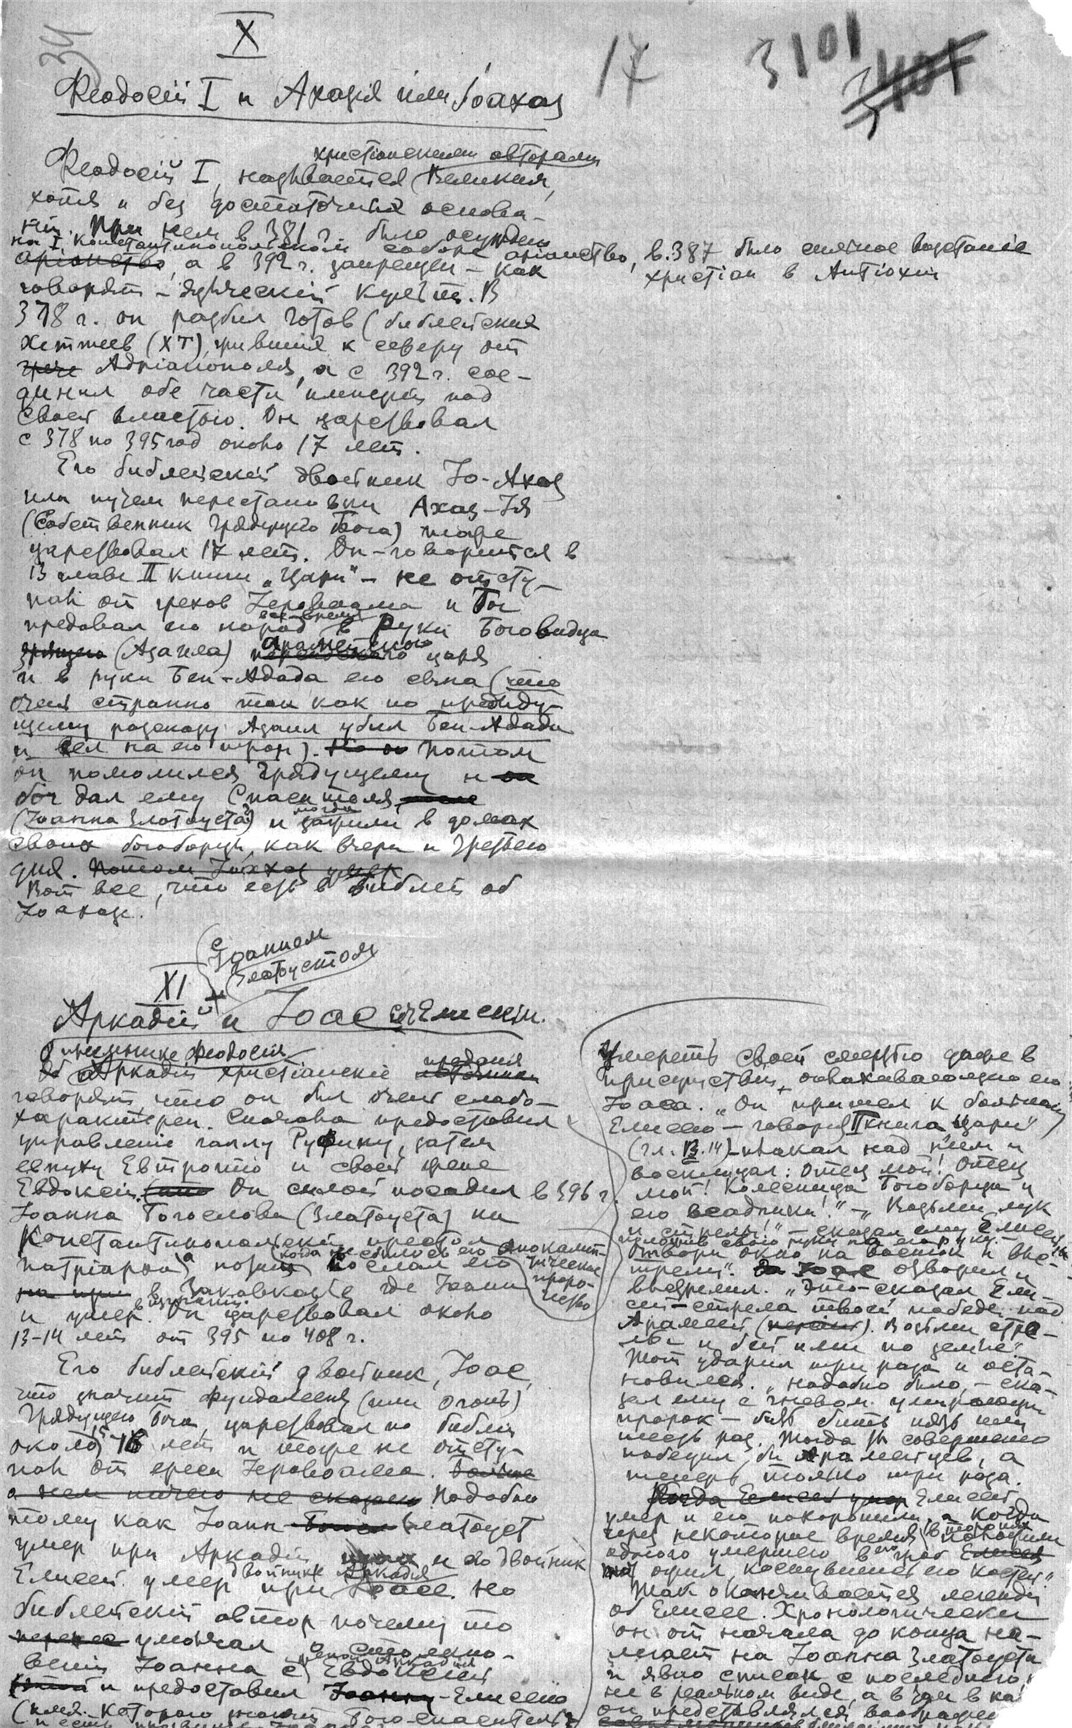 34
X
17
3101
Феодосій I и Ахазія или Іоахаз
христіанскими авторами
Феодосій I, называется Великим,
хотя и без достаточных основа-
ній. При нем в 381 г. было осуждено
на I Константинопольском соборе аріанство,
в 387 было сильное возстаніе
христіан в Антіохіи
аріанство, а в 392 г. запрещен – как
говорят – языческій культ. В
378 г. он разбил готов (библейских
Хеттеев (ХТ), живших к северу от
Адріанополя, а с 392 г. сое-
динил обе части имперіи под
своей властью. Он царствовал
с 378 по 395 год около 17 лет.
Его библейскій двойник Іо-Ахаз
или путем перестановки Ахаз-Ія
(Собственник Грядущего Бога) тоже
царствовал 17 лет. Он – говорится в
13 главе II книги „Цари“ – не отсту-
пал от грехов Іеровоама и Бог
предавал его народ в руки Боговидца
зрящего (Азаила) арамейского царя
и в руки Бен-Адада его сына (что
очень странно так как по предыду-
щему разсказу Азаил убил Бен-Адада
и сел на его трон). Но он Потом
он помолился Грядущему и он
бог дал ему Спасителя,
(Іоанна Златоуста?) и тогда зажили в домах
своих богоборцы, как вчера и третьего
дня. Потом Іоахаз умер
Вот все, что есть в Библіи об
Іоахазе.
с Іоанном
Златоустом
XI
Аркадій и Іоас с Елисеем.
О преемнике Феодосія
Аркадіи христіанскіе преданія
говорят что он был очень слабо-
характерен. Сначала предоставил
управленіе галлу Руфину, затем
евнуху Евтропію и своей жене
Евдоксіи. Он силой посадил в 396 г.
Іоанна Богослова (Златоуста) на
Константинопольскій престол
патріарха, а потом, когда не сбылось его апокалип-
тическое проро-
чество
послал его
в Закавказье где Іоанн
и умер в изгнаніи. Он царствовал около
13-14 лет от 395 по 408 г.
Его библейскій двойник, Іоас,
что значит фундамент (или огонь)
Грядущего Бога, царствовал по библіи
около 16 лет и тоже не отсту-
пал от ереси Іеровоама. Больше
о нем ничего не сказано Подобно
тому как Іоанн Златоуст
умер при Аркадіи и его двойник
Елисей умер при двойнике Аркадія Іоасе. Но
библейскій автор почему то
умолчал о столкно-
веніи Іоанна с женой Аркадія Евдоксіей
и предоставил Іоанну-Елисею
умереть своей смертью даже в
присутствіи оплакивающего его
Іоаса. „Он пришел к больному
Елисею – говорит II книга „Цари“
(гл. 13.14) – плакал над ним и
восклицал: Отец мой! Отец
мой! Колесница Богоборца и
его всадники!“ – „Возьми лук
и стрелы!“ – сказал ему Елисей,
положив свою руку на его руку. –
Отвори окно на восток и вы-
стрели“. Іоас отворил и
выстрелил. „Это – сказал Ели-
сей – стрела твоей победы над
Арамеей. Возьми стре-
лы и бей ими по земле“
Тот ударил три раза и оста-
новился. „Надобно было, – ска-
зал ему с гневом умирающій
пророк – бить пять или
шесть раз. Тогда ты совершенно
победил бы Арамейцев, а
теперь только три раза.
Когда Елисей умер Елисей
умер и его похоронили, а когда
через некоторое время положили
одного умершего в его гроб Елисея
тот ожил, коснувшись его костей“
Так оканчивается легенда
об Елисее. Хронологически
он от начала до конца на-
легает на Іоанна Златоуста
и явно списан с последнего
не в реальном виде, а в том в ка-